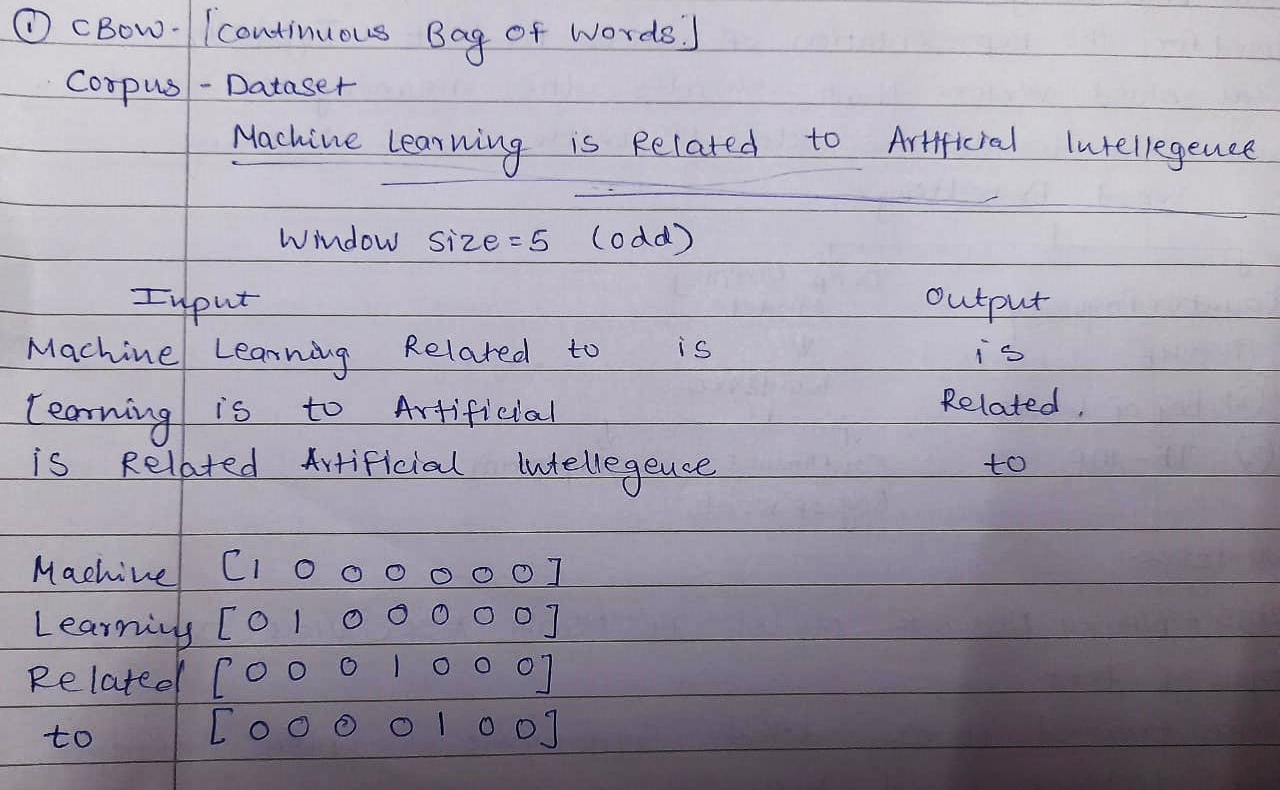 ① CBOW - [Continuous Bag of Words.]
Corpus - Dataset
Machine Learning is Related to Artificial Intellegence
Window size = 5 (odd)
Input Output
Machine Learning Related to is is
Learning is to Artificial Related.
is Related Artificial Intellegence to
Machine [1 0 0 0 0 0 0]
Learning [0 1 0 0 0 0 0]
Related [0 0 0 1 0 0 0]
to [0 0 0 0 1 0 0]